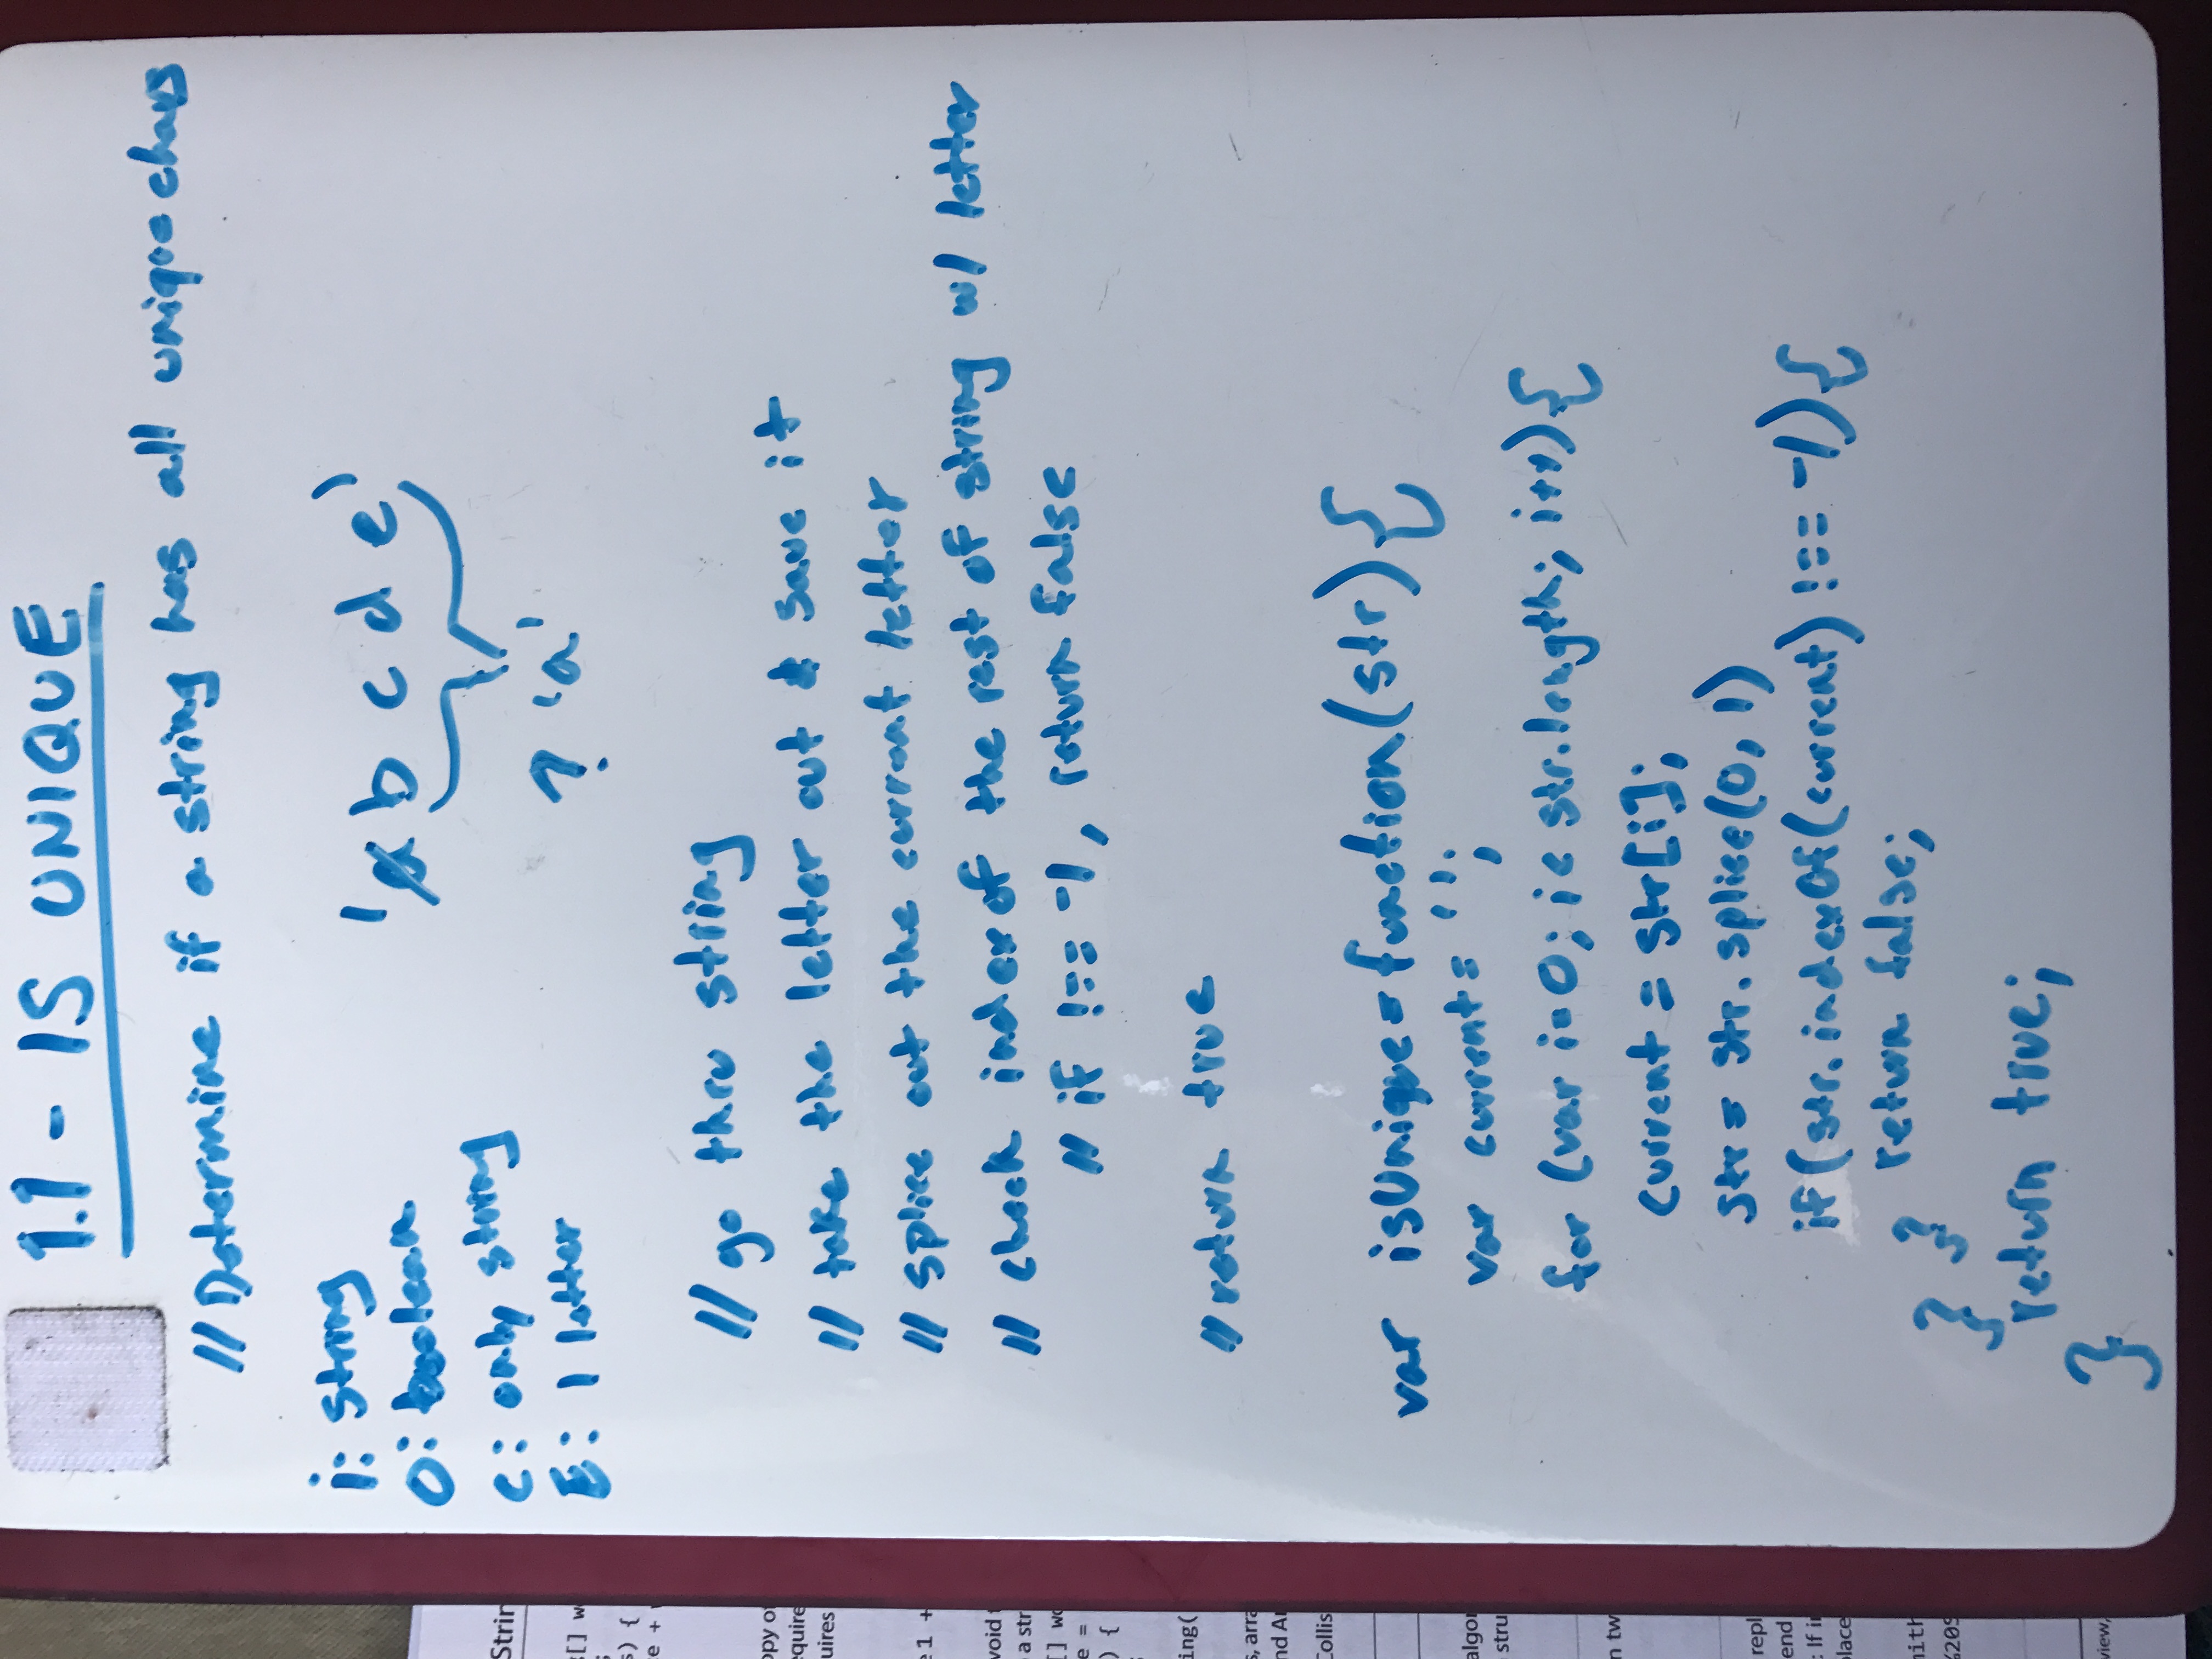 1.1 - IS UNIQUE
// Determine if a string has all unique chars
i: string
O: boolean
C: only string
E: 1 letter
'a b c d e'
? 'a'
// go thru string
// take the letter out & save it
// splice out the current letter
// check index of the rest of string w/ letter
// if !== -1, return false
// return true
var isUnique = function(str){
var current = '';
for (var i=0; i< str.length; i++){
current = str[i];
str = str.splice(0, 1)
if(str.indexOf(current) !== -1){
return false;
} }
return true;
}
Strin
[] w
s) {
e +
opy of
equire
uires
e1 +
void
a str
[] wo
e =
) {
ing(
s, arra
nd Ar
Collis
algor
stru
n tw
repl
end
: If i
place
mith
%20S
view,